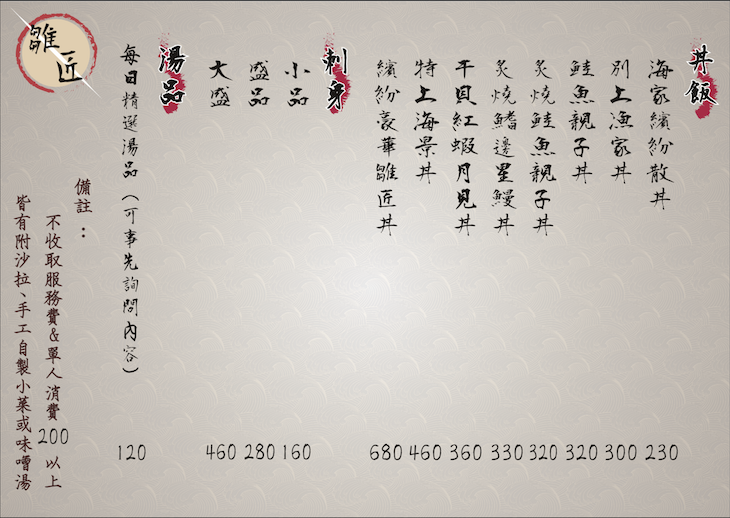 丼飯
海家繽紛散丼 230
別上漁家丼 300
鮭魚親子丼 320
炙燒鮭魚親子丼 320
炙燒鰭邊星鰻丼 330
干貝紅蝦月見丼 360
特上海景丼 460
繽紛豪華雛匠丼 680
刺身
小品 160
盛品 280
大盛 460
湯品
每日精選湯品（可事先詢問內容） 120
雛匠
備註：
不收取服務費&單人消費200以上
皆有附沙拉、手工自製小菜或味噌湯